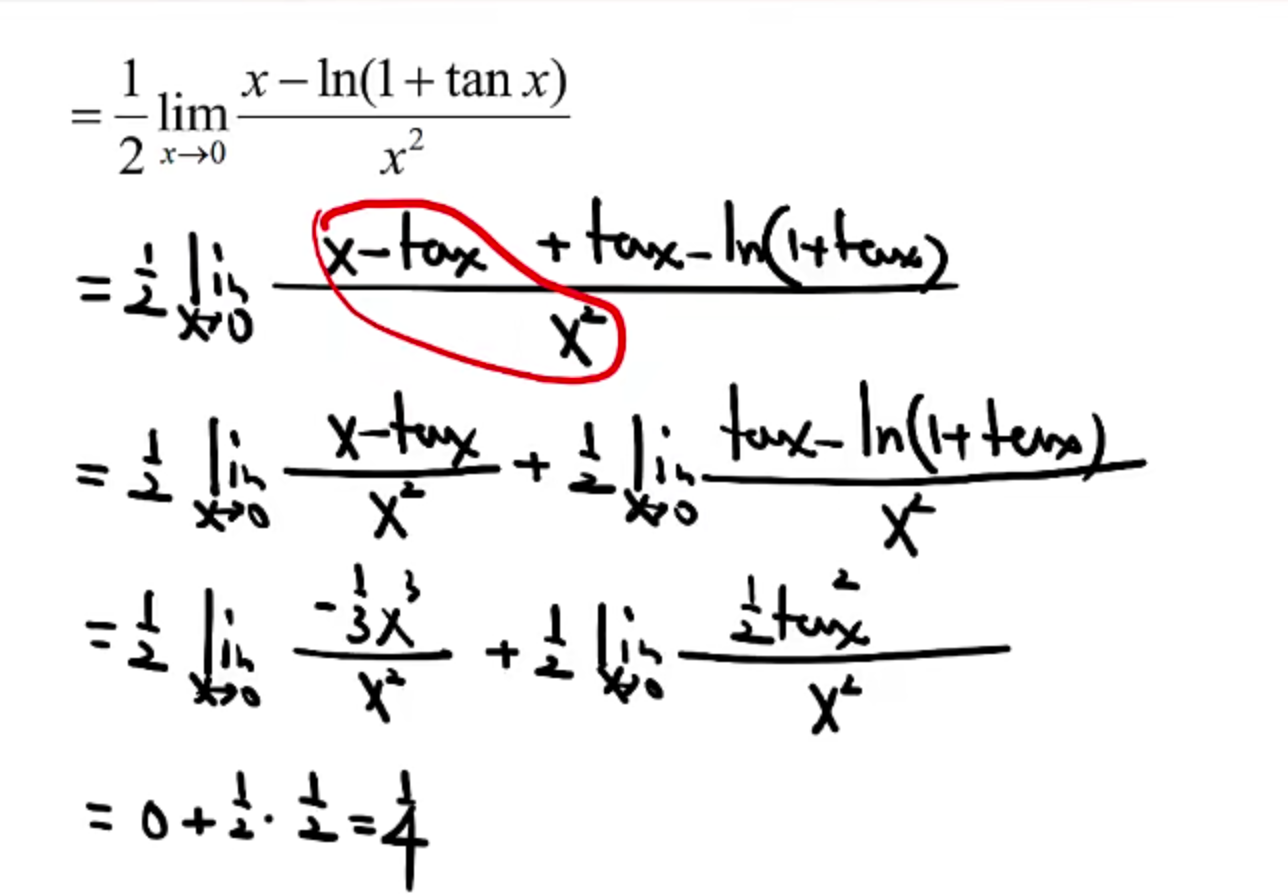 = 1/2 lim x→0 (x − ln(1 + tan x)) / x²
= 1/2 lim x→0 (x − tanx + tanx − ln(1+tanx)) / x²
= 1/2 lim x→0 (x − tanx) / x² + 1/2 lim x→0 (tanx − ln(1+tanx)) / x²
= 1/2 lim x→0 (−1/3 x³) / x² + 1/2 lim x→0 (1/2 tan²x) / x²
= 0 + 1/2 · 1/2 = 1/4